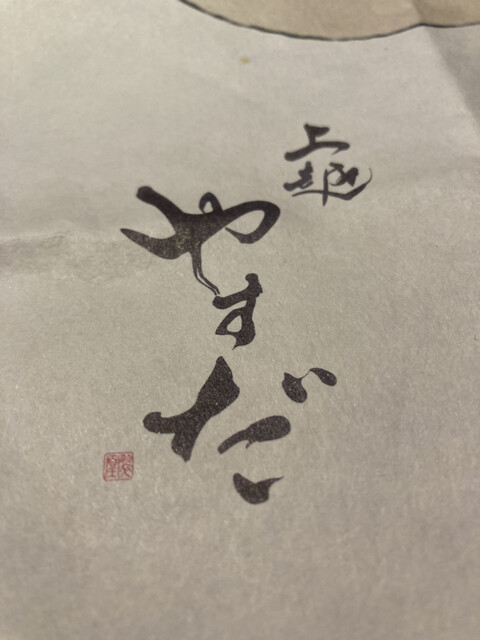 上越
やすだ